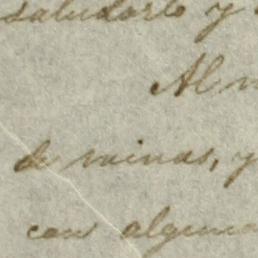 saludarlo y
Al
de minas, y
con alguna